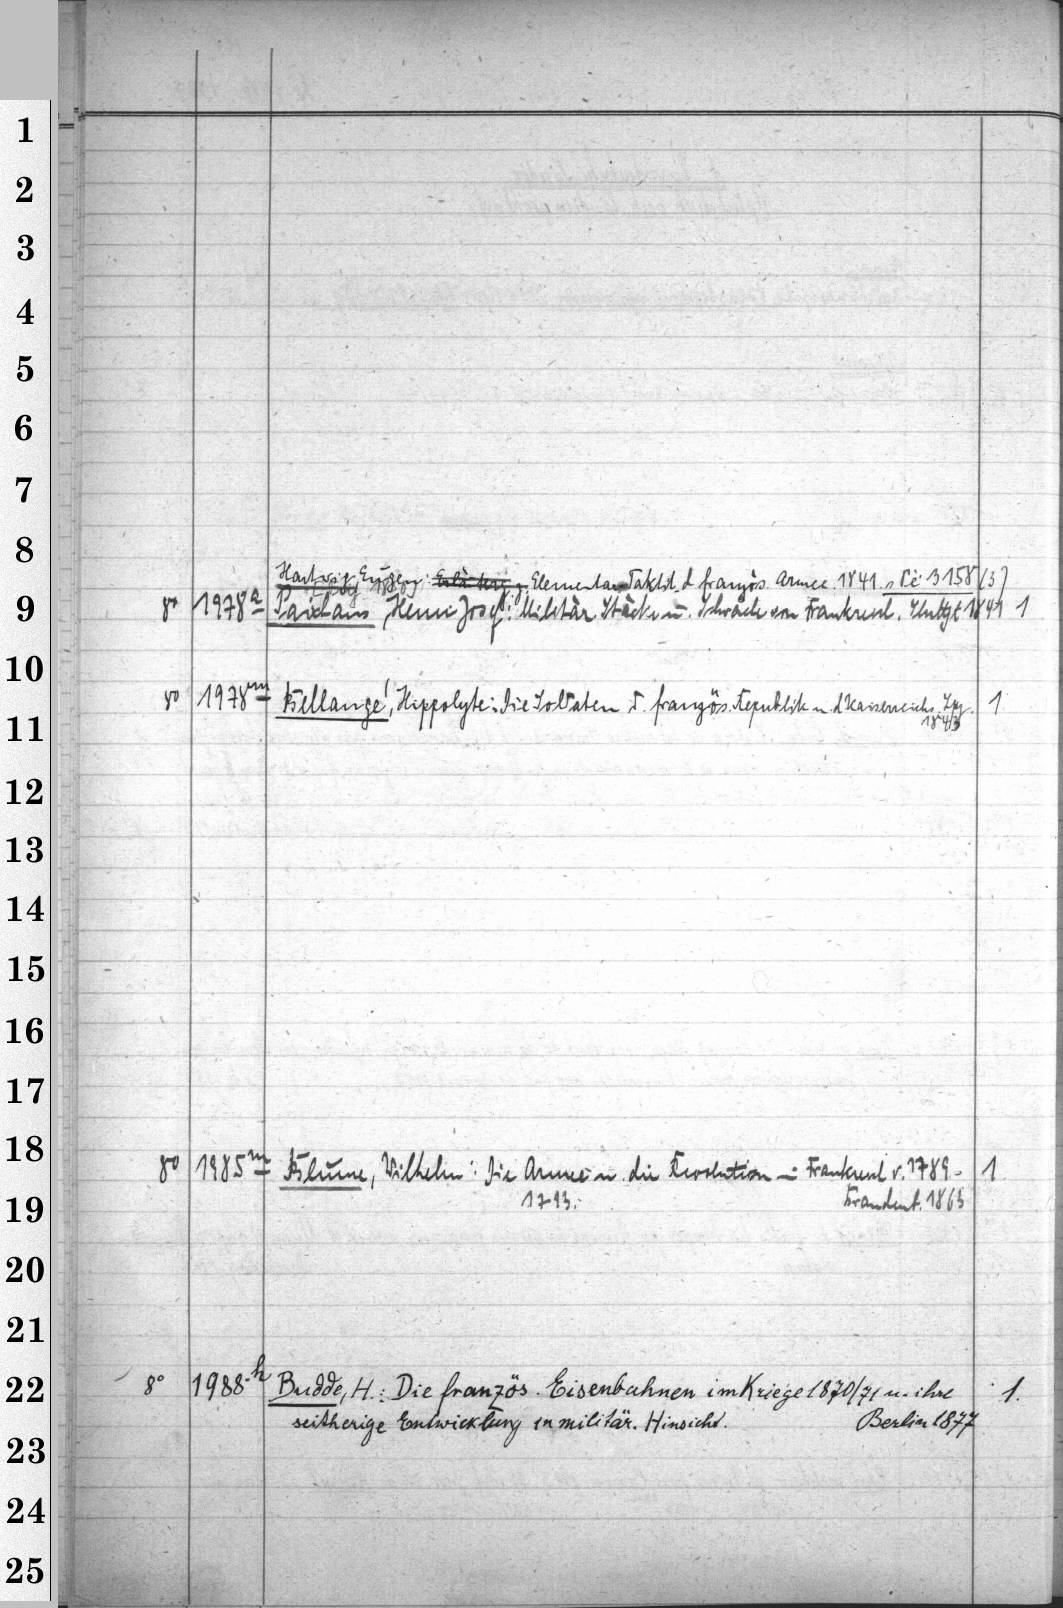 1
2
3
4
5
6
7
8
Hartwig, Eugen: Elementar-Taktik d. französ. Armee. 1841 s. 3158 (3)
9 8° 1978 a Paixhans, Henri Josef: Militär. Stärke u. Schwäche von Frankreich. Stuttgt 1841 1
10
8° 1978 m Bellangé, Hippolyte: Die Soldaten d. französ. Republik u. d. Kaiserreichs. Lpzg. 1
11 1843
12
13
14
15
16
17
18 8° 1985 m Blume, Wilhelm: Die Armee u. die Revolution in Frankreich v. 1789- 1
19 1793. Brandenb. 1863
20
21
22 8° 1988 h Budde, H.: Die französ. Eisenbahnen im Kriege 1870/71 u. ihre 1.
seitherige Entwicklung in militär. Hinsicht. Berlin 1877
23
24
25